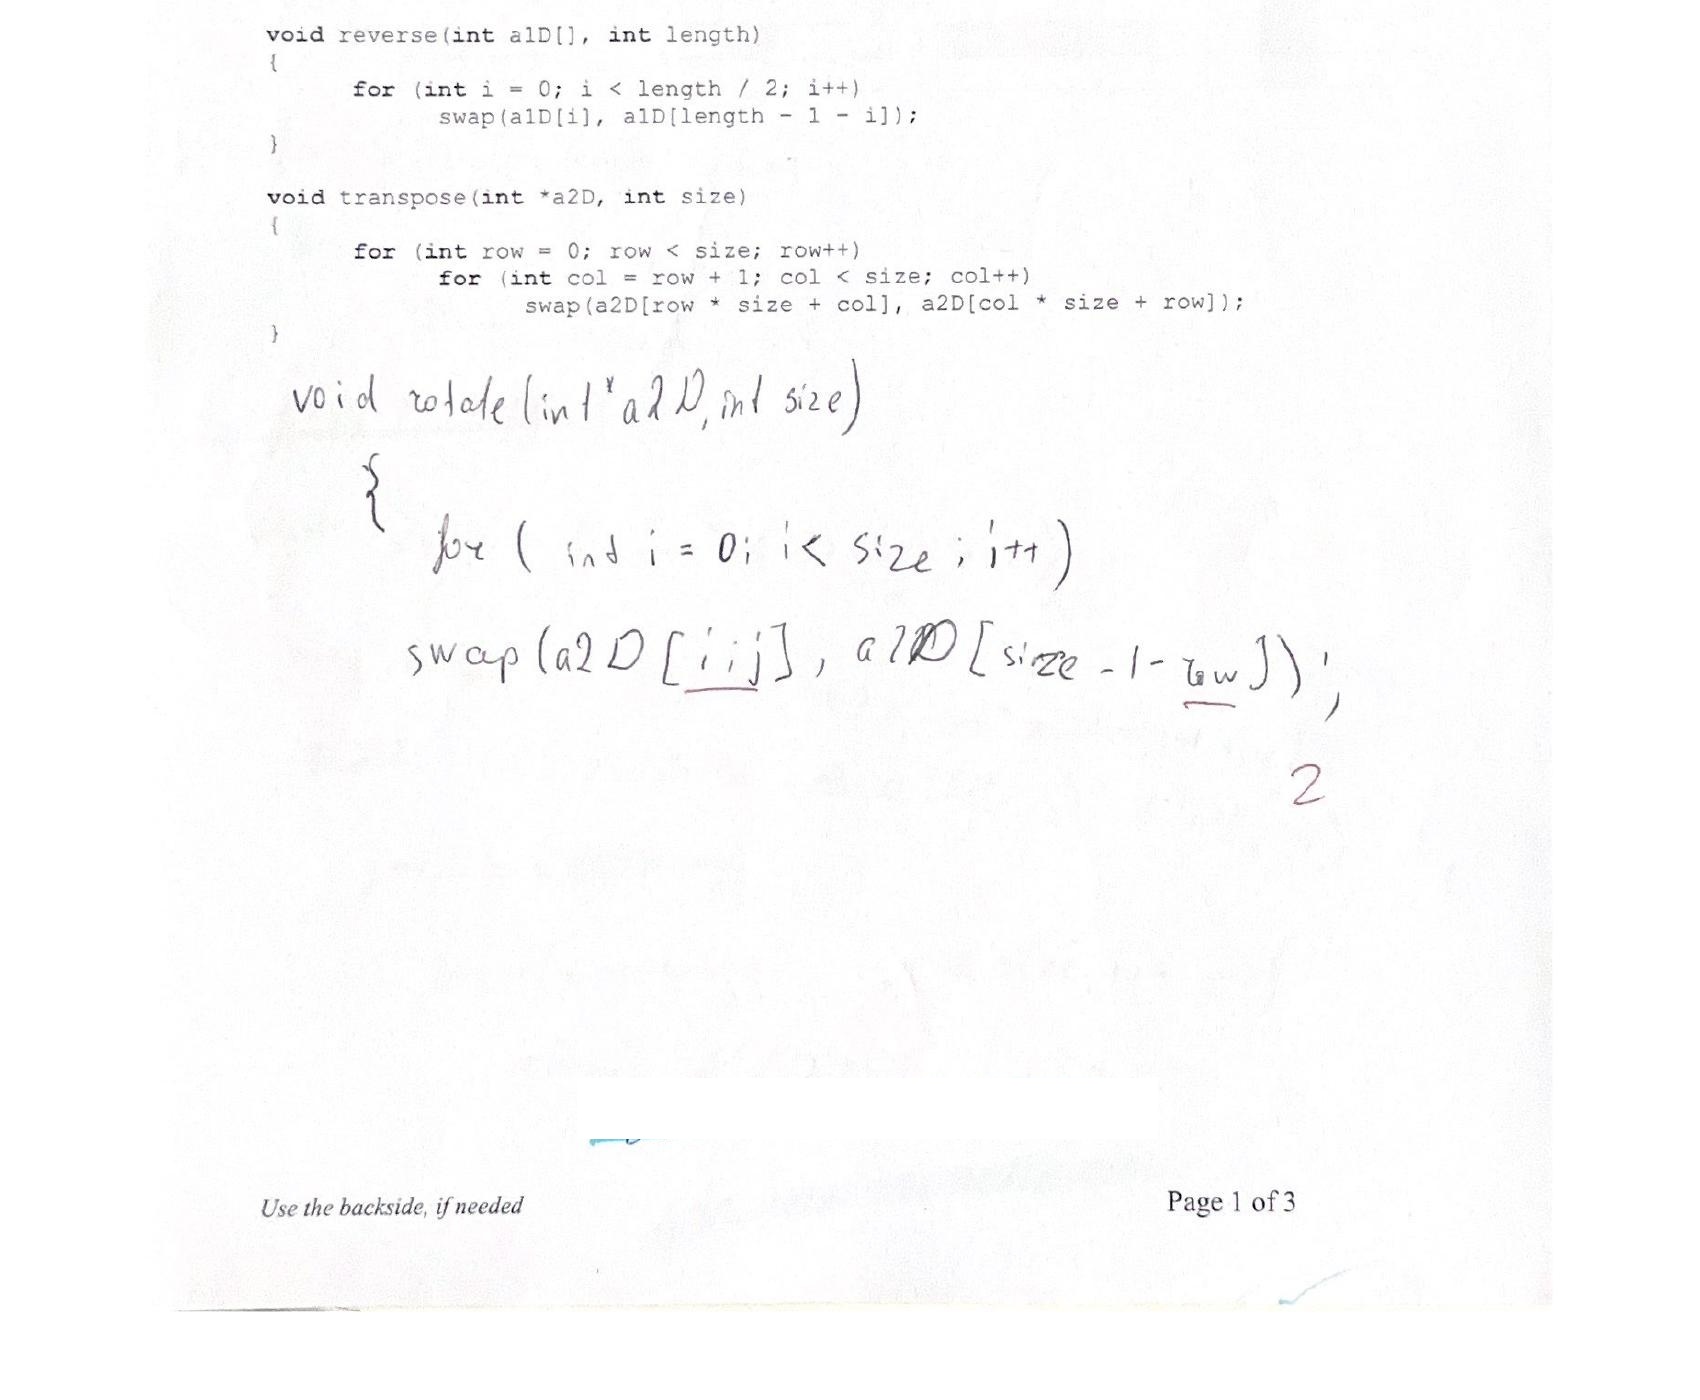 void reverse(int a1D[], int length)
{
for (int i = 0; i < length / 2; i++)
swap(a1D[i], a1D[length - 1 - i]);
}
void transpose(int *a2D, int size)
{
for (int row = 0; row < size; row++)
for (int col = row + 1; col < size; col++)
swap(a2D[row * size + col], a2D[col * size + row]);
}
void rotate(int *a2D, int size)
{
for ( int i = 0; i < size ; i++)
swap(a2D[i;j], a2D[size - 1 - row]);
2
Use the backside, if needed
Page 1 of 3